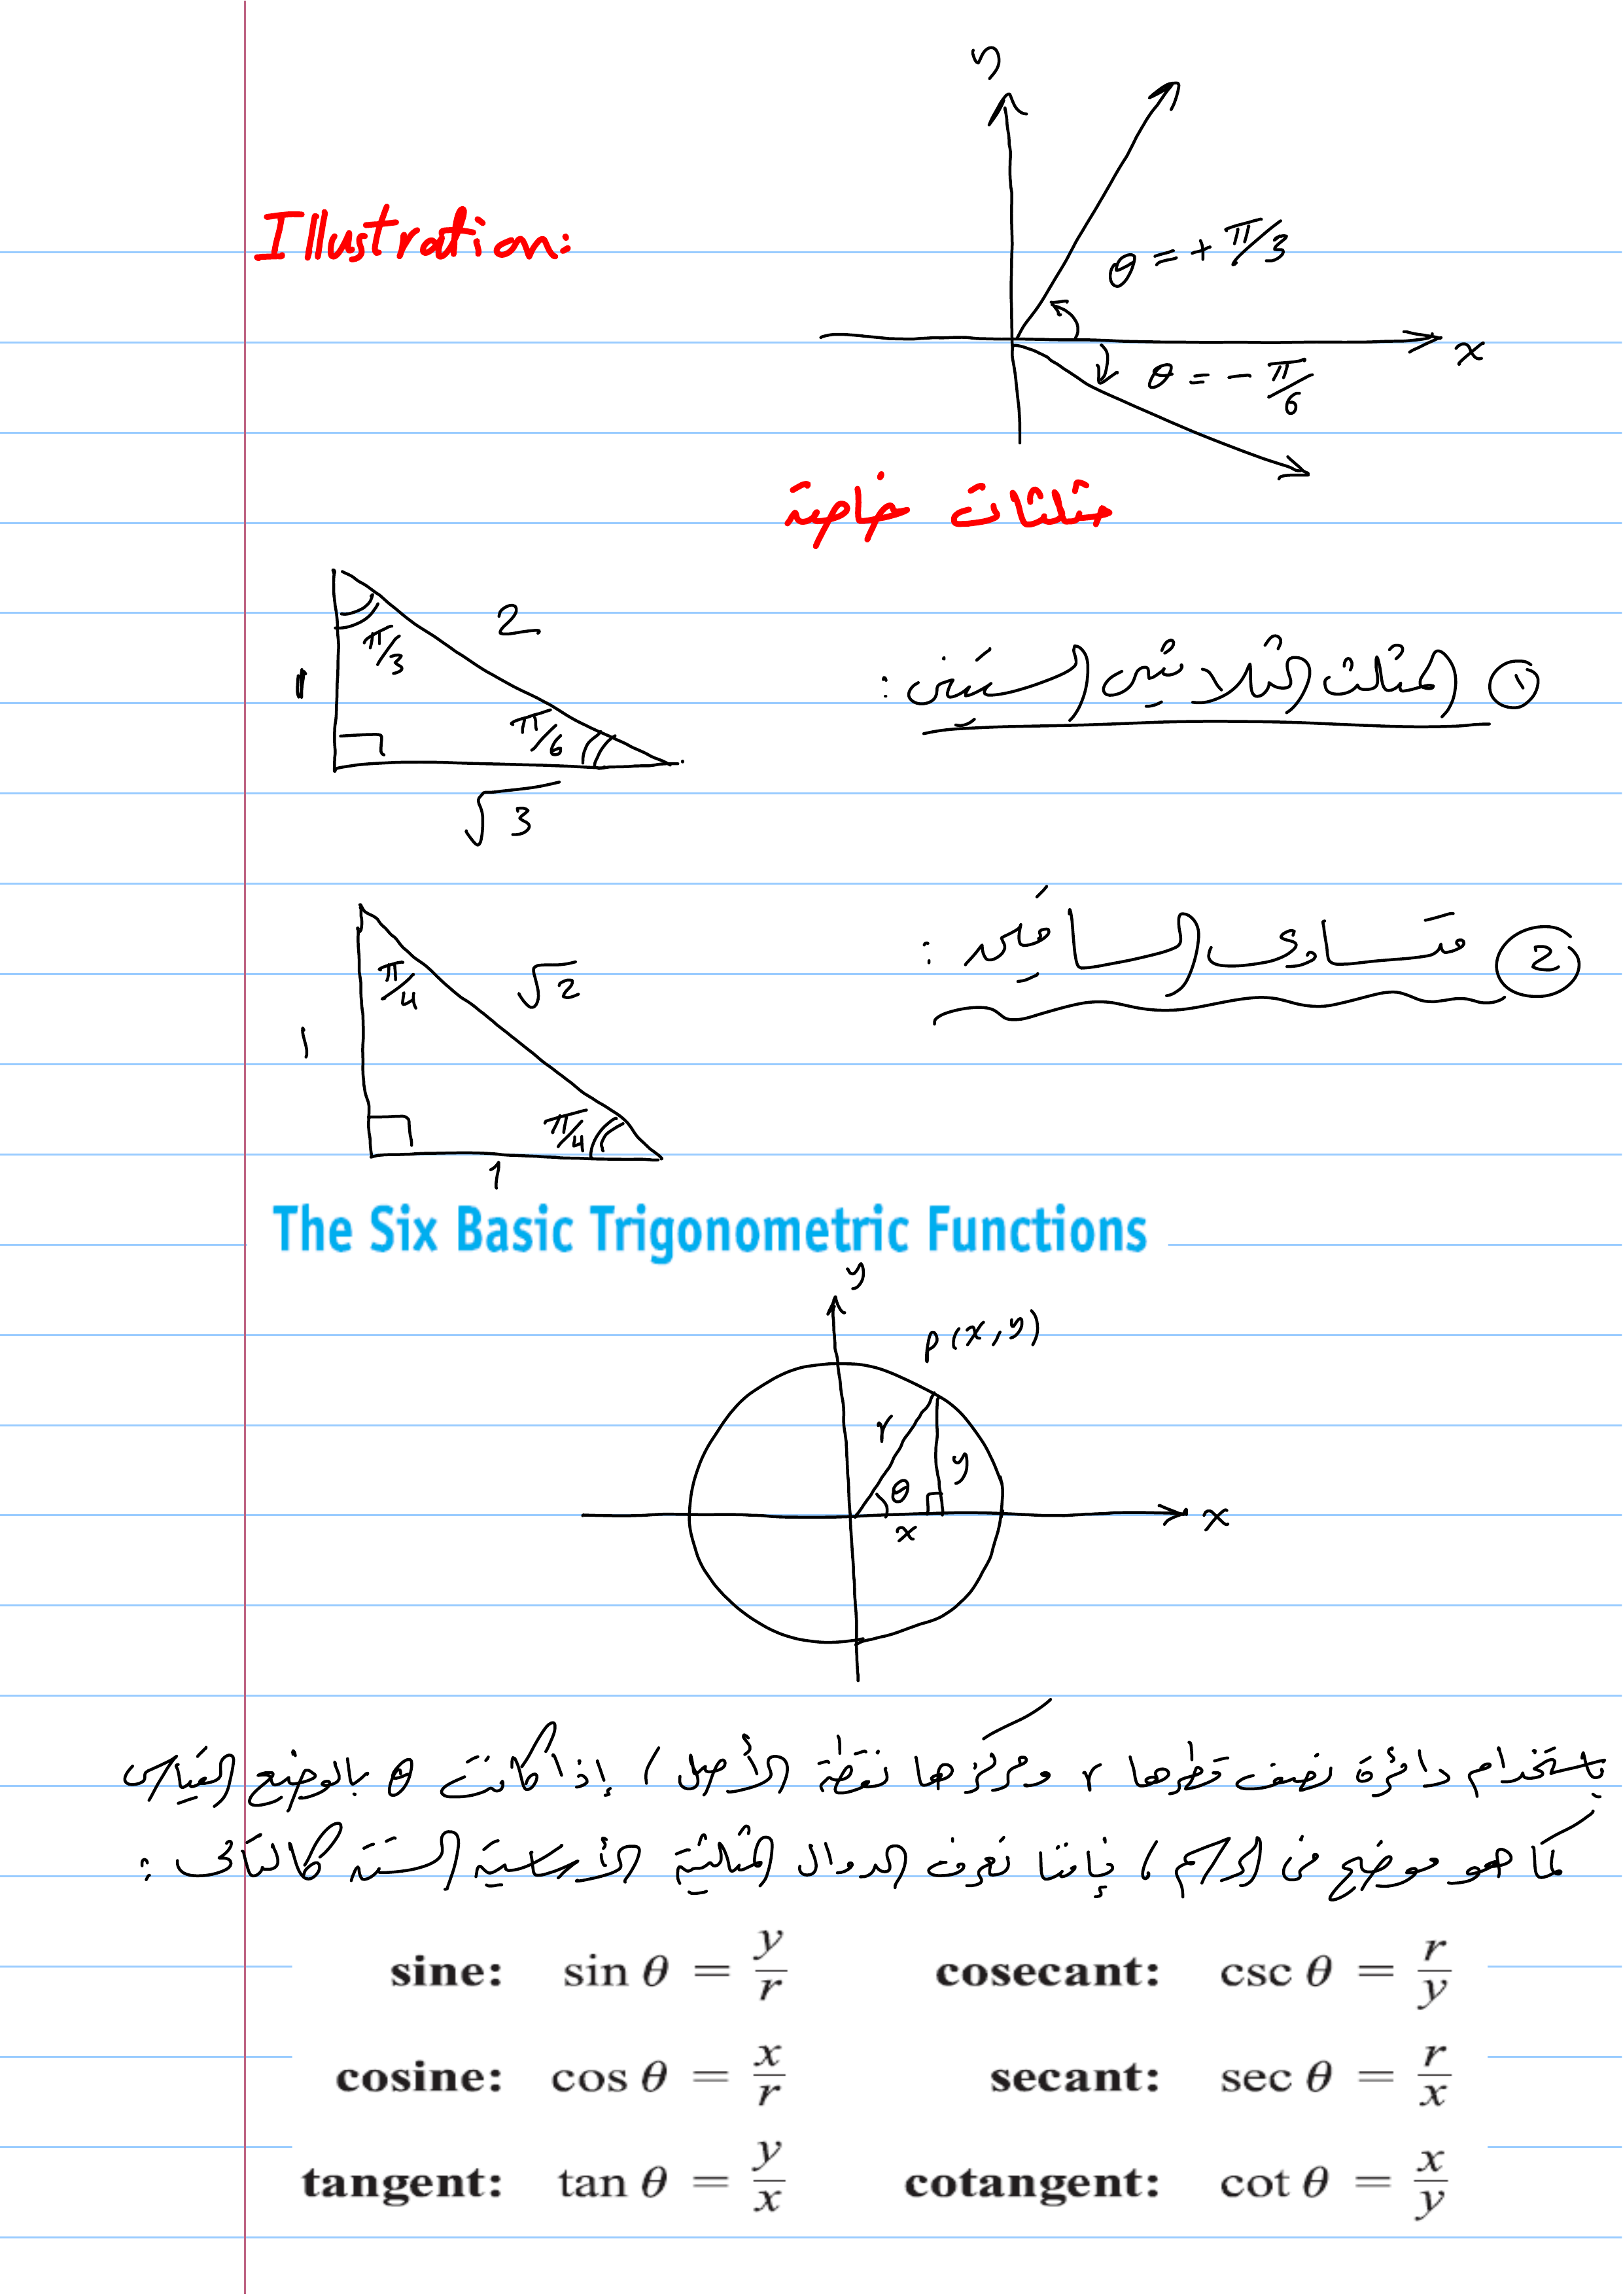 y
Illustration:
θ = + π/3
x
θ = - π/6
مثلثات خاصة
① المثلث الثلاثيني الستيني :
2
π/3
1
π/6
√3
② متساوي الساقين :
π/4
√2
1
π/4
1
The Six Basic Trigonometric Functions
y
P(x,y)
r
y
θ
x
x
باستخدام دائرة نصف قطرها r ومركزها نقطة الأصل ، إذا كانت θ بالوضع القياسي
كما هو موضح في الرسم ، فإننا نعرف الدوال المثلثية الأساسية الستة كالتالي :
sine: sin θ = y/r cosecant: csc θ = r/y
cosine: cos θ = x/r secant: sec θ = r/x
tangent: tan θ = y/x cotangent: cot θ = x/y